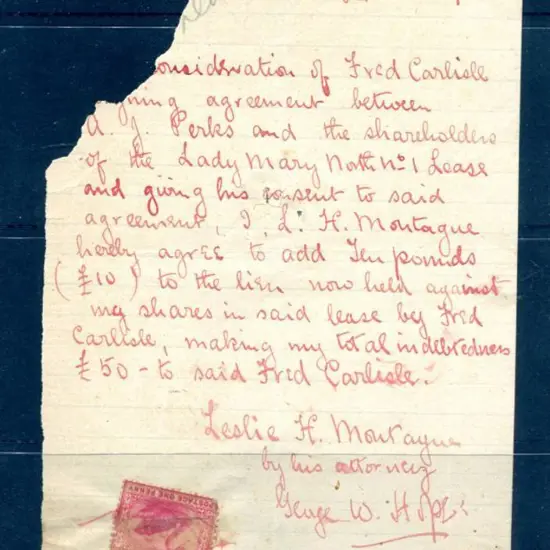 onsideration of Fred Carlisle
ning agreement between
A. J. Perks and the shareholders
of the Lady Mary North No 1 Lease
and giving his consent to said
agreement, I, L. H. Montague
hereby agree to add Ten pounds
(£10) to the lien now held against
my shares in said lease by Fred
Carlisle, making my total indebtedness
£50 - to said Fred Carlisle.
Leslie H. Montague
by his attorney
George W. Hope
POSTAGE ONE PENNY